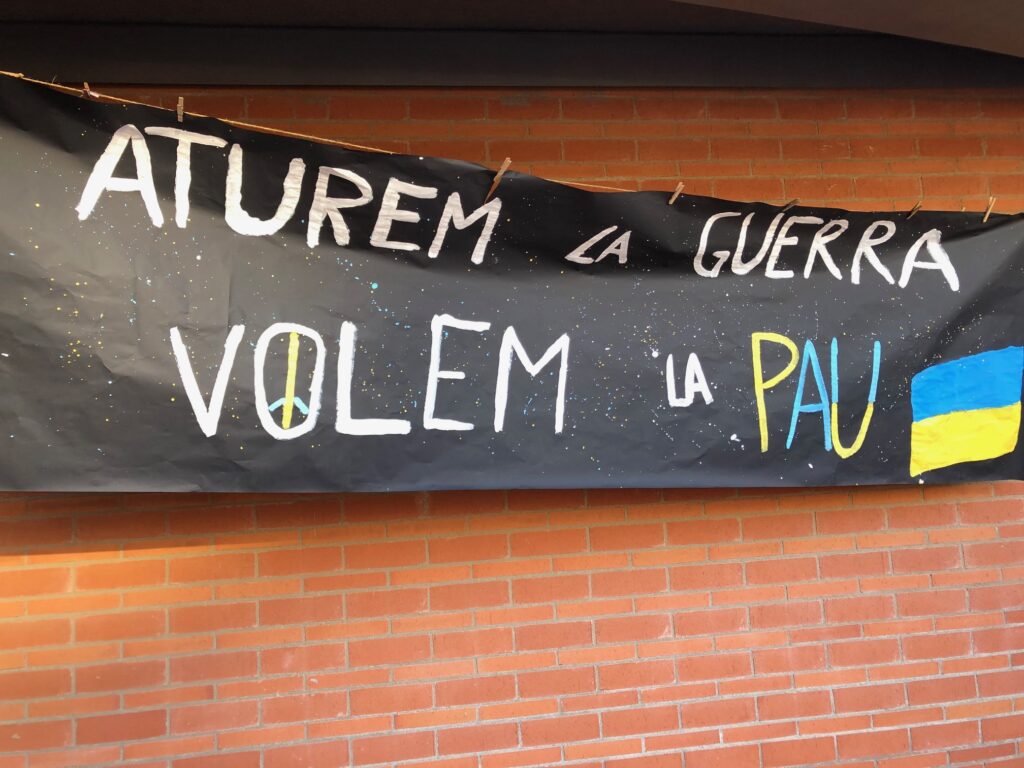 ATUREM LA GUERRA
VOLEM LA PAU